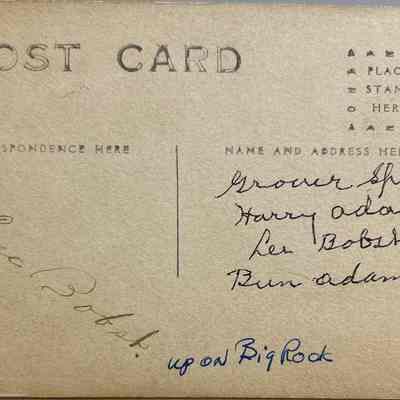 OST CARD
PLAC
STAN
HER
SPONDENCE HERE
NAME AND ADDRESS HE
Grover Sp
Harry Ada
Lee Bobsh
Bun Adam
Bobsh.
up on Big Rock